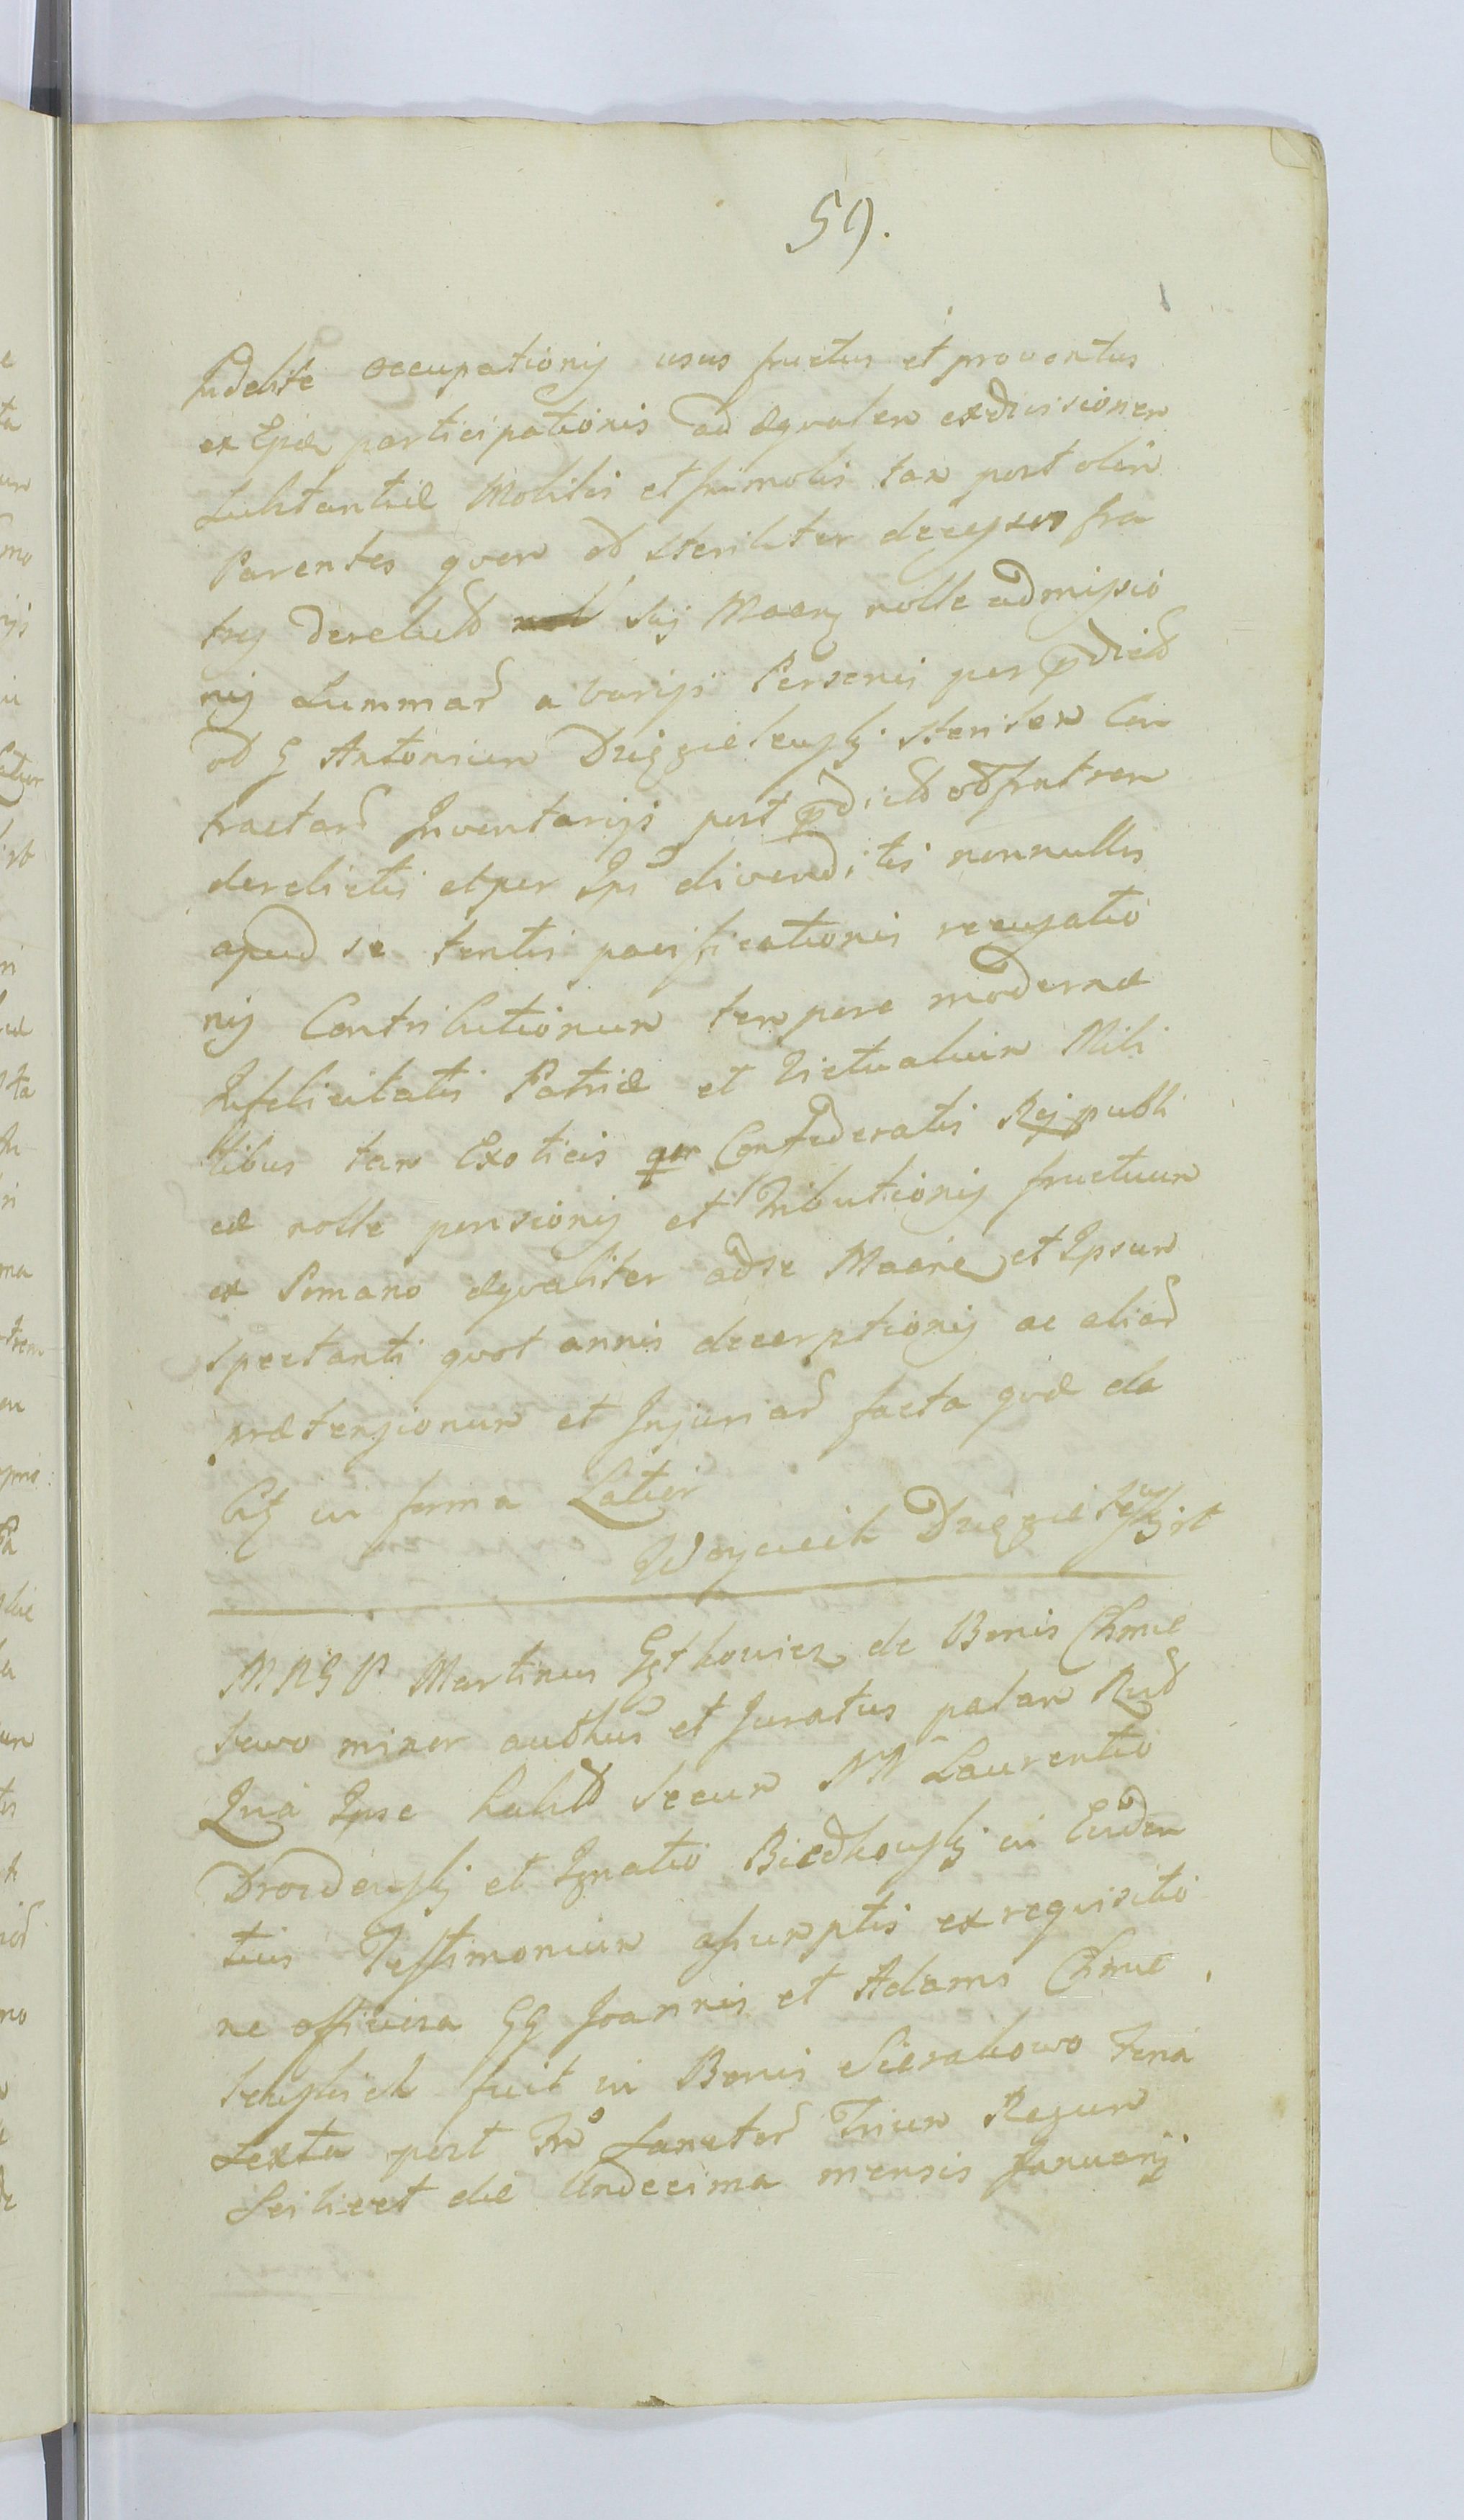 59.
Indebite occupationis usus fructus et proventus
ex Ejsd participationis ad æqualem exdivisionem
Substantiæ Mobilis et Immobilis tam post olim
Parentes quem ob steriliter decessum fra
tres derelictd Suj Maeny nolle admissio
nis Summar a varijs Personis per p̄dictd
ob G Antonium Dzięgielewski sterilem Con
tractar Inventarijs post p̄dictd ob fratrem
derelictis et per Ips divenditis nonnullis
apud se tentis pacificationis recusatio
nis Contributionum tempore modernæ
Infelicitatis Patriæ et Victualium Mili
tibus tam Exoticis qm Confœderatis Rejpubli
cæ nolle pensionis et Tributionis fructuum
ex Pomario æqualiter ad se Maene et Ipsum
spectanti quot annis decerptionis ac aliar
prætensionum et Injuriar facta quæ de
Citt in forma Latior
Woyciech Dzięgielewski st
MRGP Martinus de Bonis Chmie
lewo minor authus et Juratus palam Rnd
Quia Ipse habito Secum NN Laurentio
Drozdewski et Ignatio Biedkowski in Eviden
tius Testimonium assumptis ex requisitio
ne officiosa GG Joannis et Adami Chmie
lewskich fuit in Bonis Sierakowo Feria
Sexta post Fm Sanctor Trium Regum
Scilicet die Undecima mensis Januarij